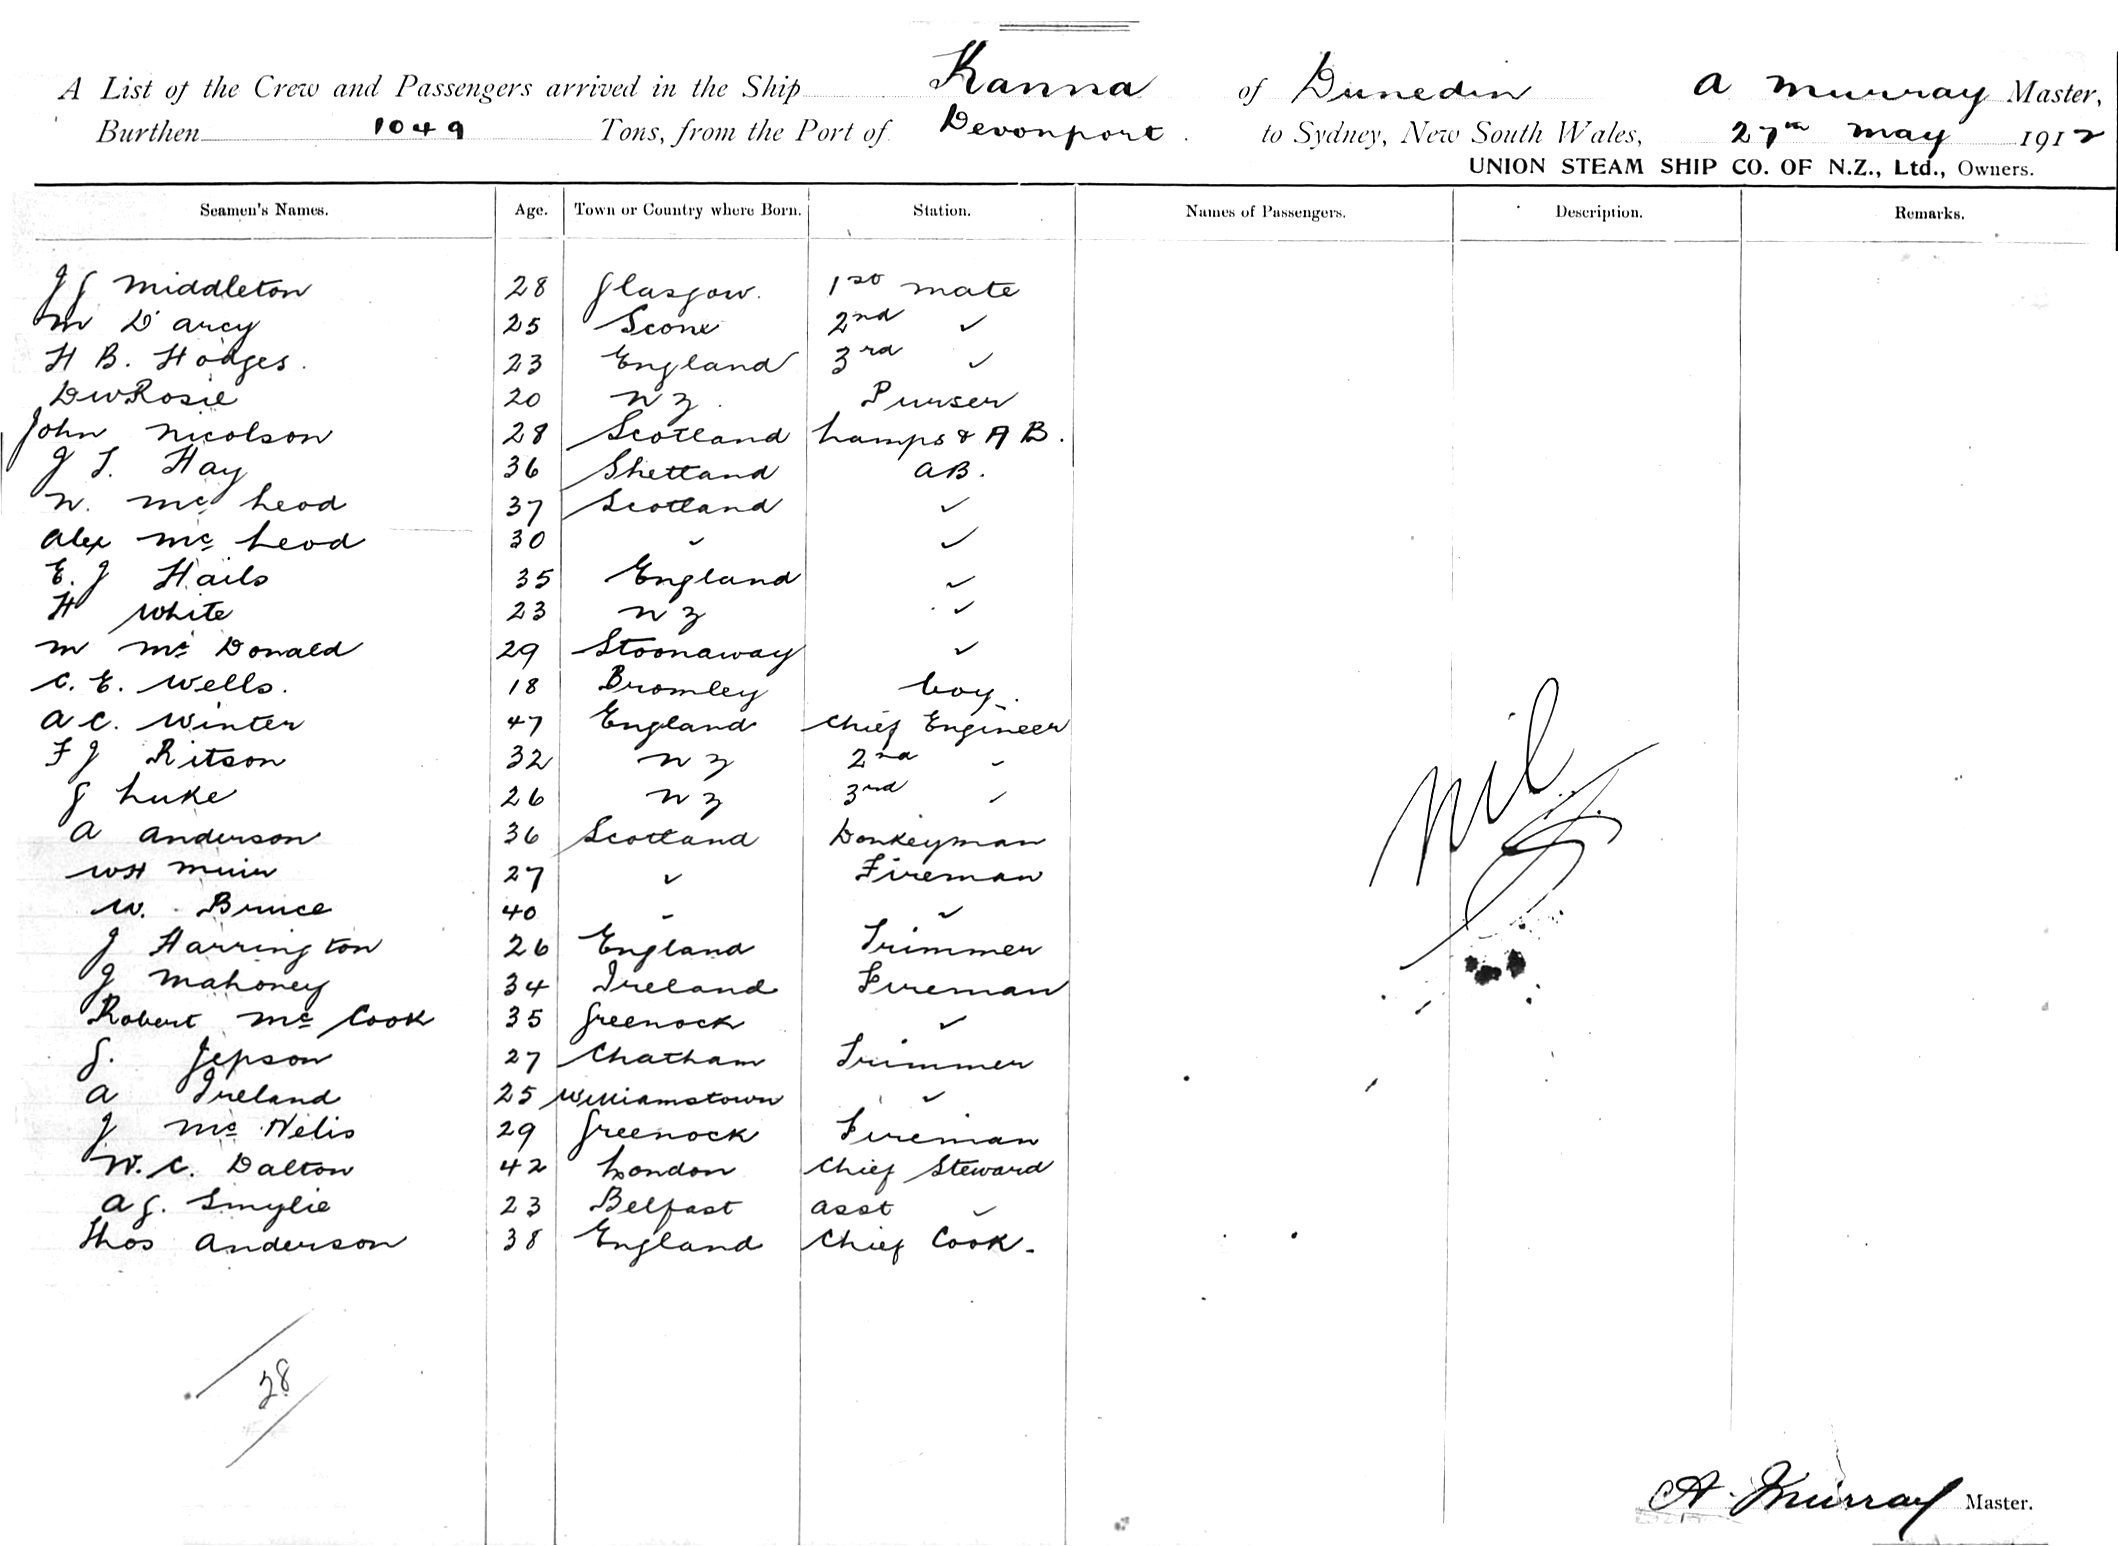 A List of the Crew and Passengers arrived in the Ship Kanna of Dunedin A Murray Master,
Burthen 1049 Tons, from the Port of Devonport. to Sydney, New South Wales, 27th May 1912
UNION STEAM SHIP CO. OF N.Z., Ltd., Owners.
Seamen's Names. Age. Town or Country where Born. Station. Names of Passengers. Description. Remarks.
J J Middleton 28 Glasgow. 1st mate
M D'arcy 25 Scone 2nd ✓
H B. Hodges. 23 England 3rd ✓
D W Rosie 20 N Z. Purser
John Nicolson 28 Scotland Lamps & A B.
J T. Hay 36 Shetland AB.
N. Mc Leod 37 Scotland ✓
Alex Mc Leod 30 ✓ ✓
E. J Hails 35 England ✓
H White 23 N Z ✓
M Mc Donald 29 Stoonaway ✓
C. E. Wells. 18 Bromley boy.
A C. Winter 47 England Chief Engineer
F J Ritson 32 N Z 2nd ✓
G Luke 26 N Z 3rd ✓
A Anderson 36 Scotland Donkeyman
WH Muir 27 ✓ Fireman
W. Bruce 40 ✓ ✓
J Harrington 26 England Trimmer
J Mahoney 34 Ireland Fireman
Robert Mc Cook 35 Greenock ✓
G. Jepson 27 Chatham Trimmer
A Ireland 25 Williamstown ✓
J Mc Nelis 29 Greenock Fireman
W. C. Dalton 42 London Chief Steward
A G. Smylie 23 Belfast asst ✓
Thos Anderson 38 England Chief Cook.
Nil
28
A. Murray Master.